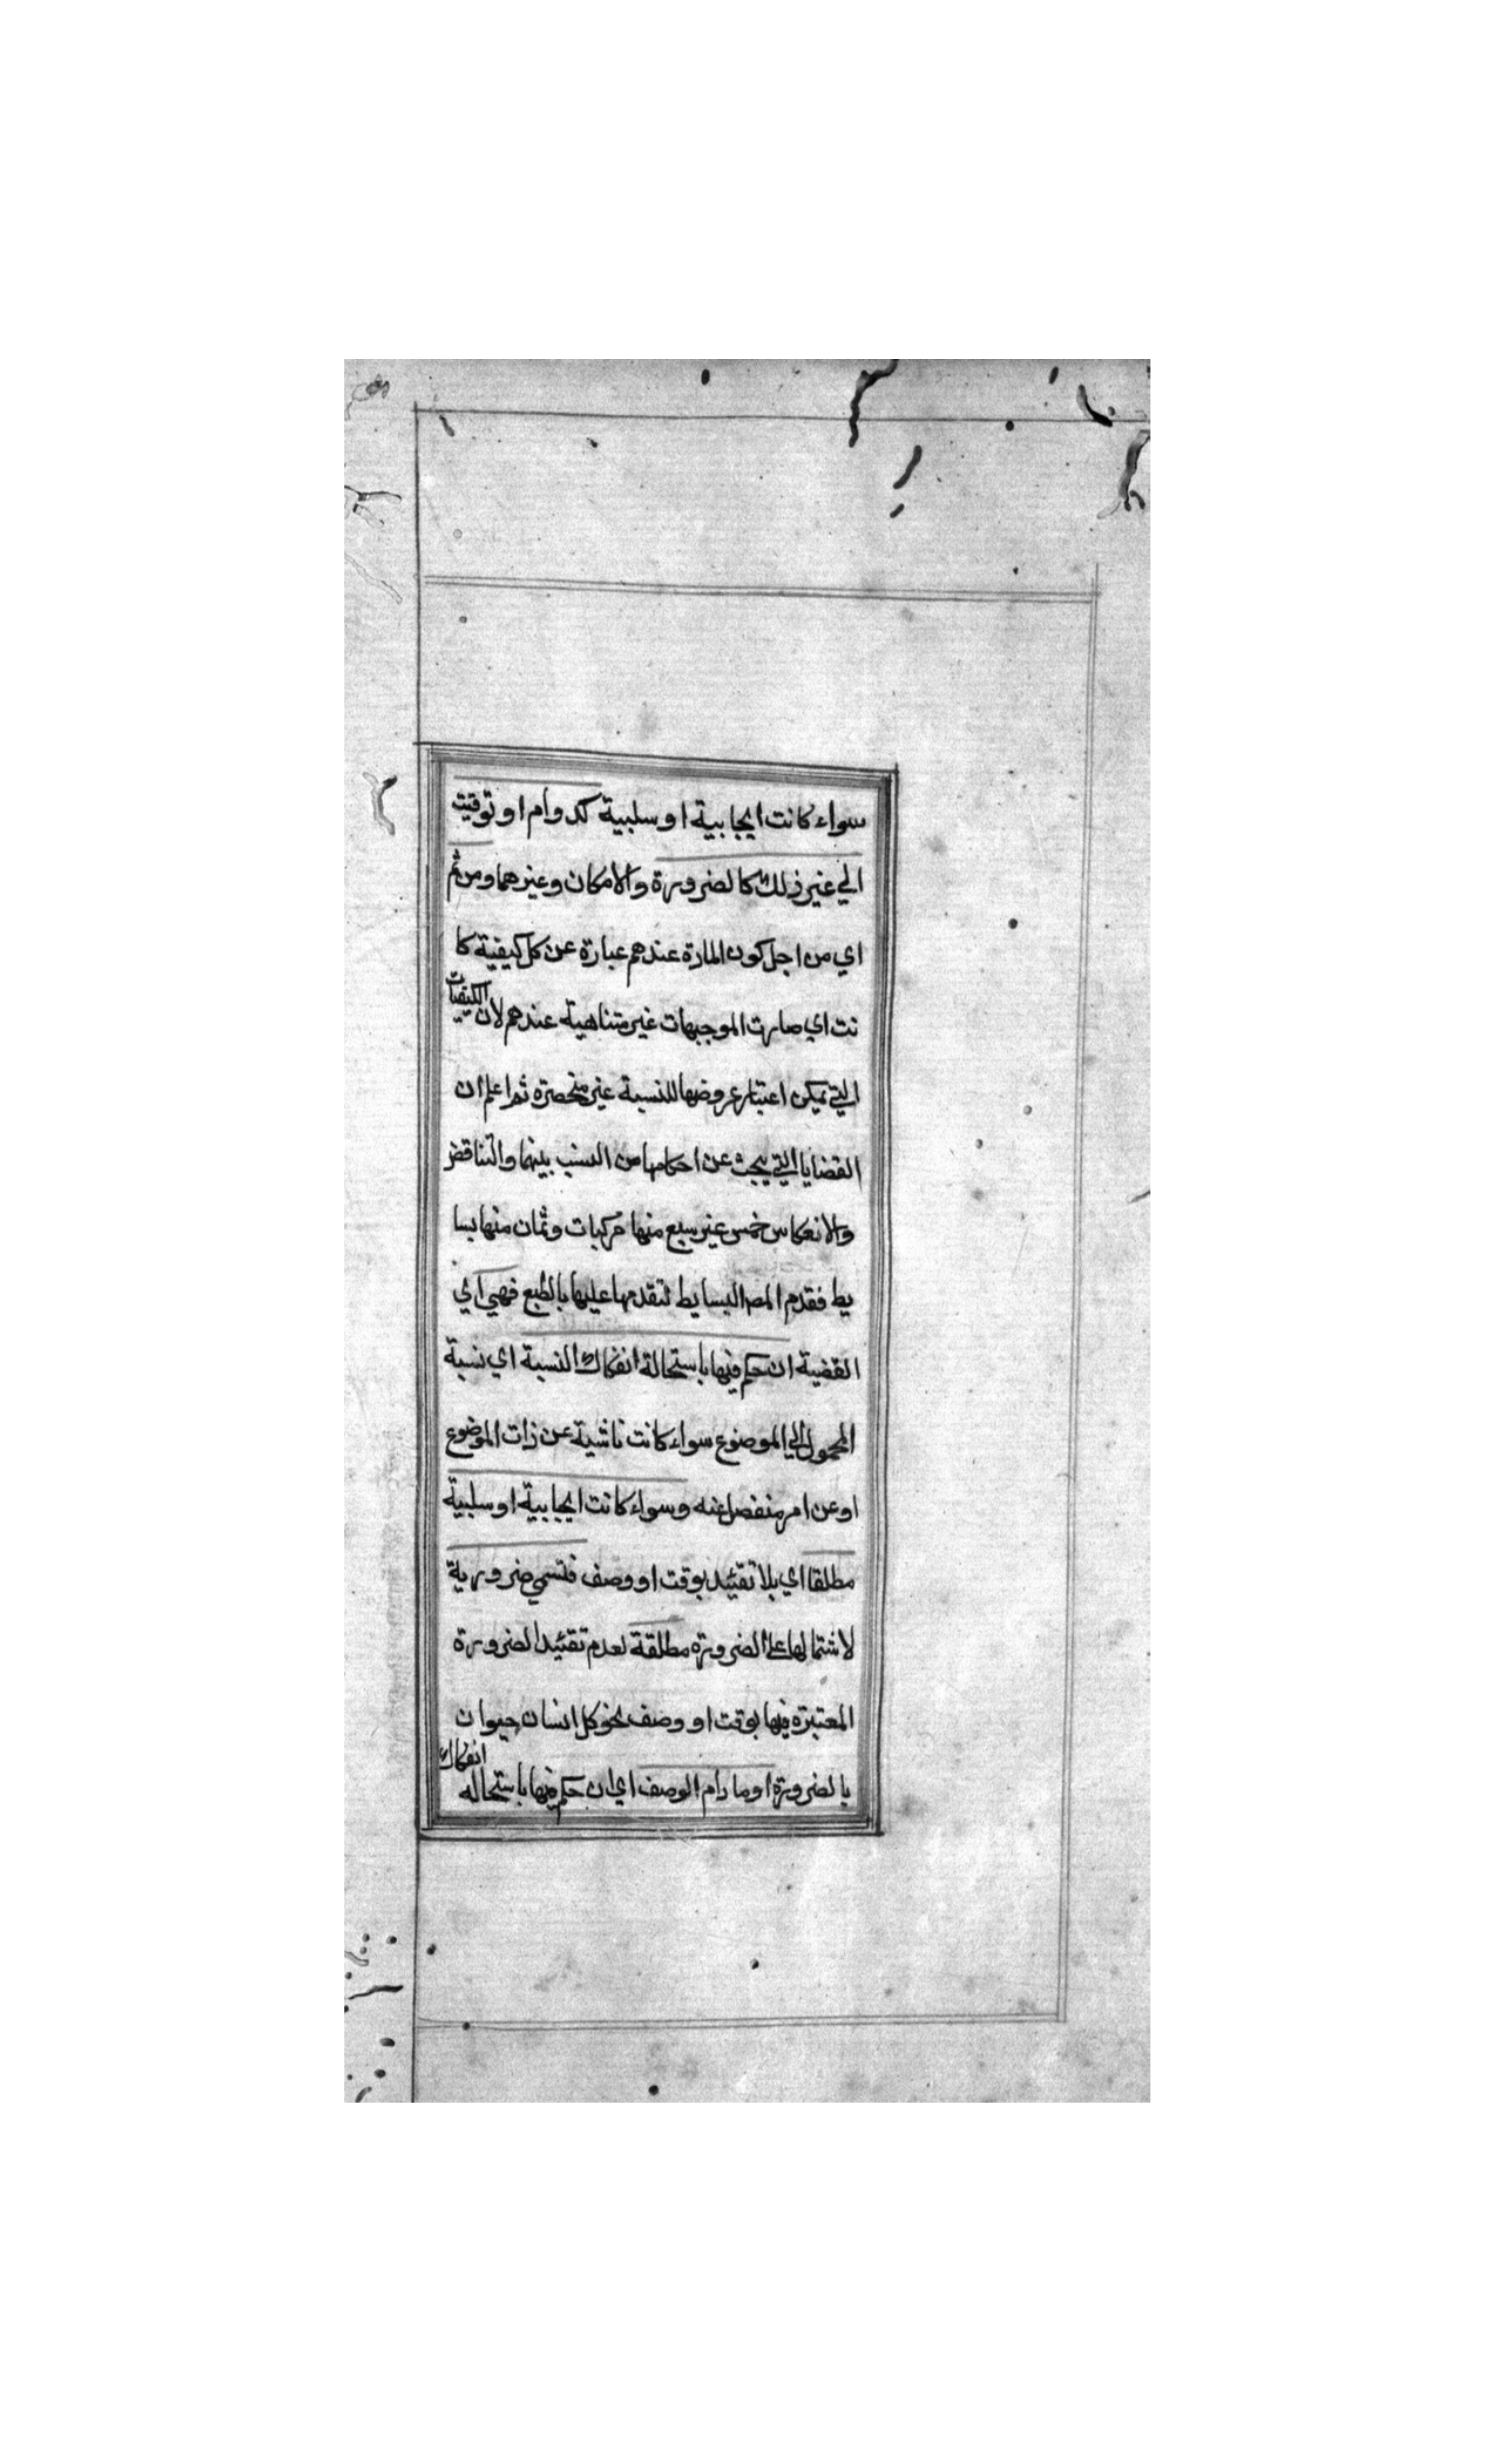 سواء كانت ايجابية او سلبية كدوام او توقيت
الي غير ذلك كالضرورة والامكان وغيرهما ومن ثم
اي من اجل كون المادة عندهم عبارة عن كل كيفية كا
نت اي صارت الموجبهات غير متناهية عندهم لان الكيفيات
التي يمكن اعتبار عروضها للنسبة غير منحصرة ثم اعلم ان
القضايا التي يبحث عن احكامها من النسب بينهما والتناقض
والانعكاس خمس عشر سبع منها مركبات وثمان منها بسا
يط فقدم المص البسايط لتقدمها عليها بالطبع فهي اي
القضية ان حكم فيها باستحالة انفكاك النسبة اي نسبة
المحمول الي الموضوع سواء كانت ناشية عن ذات الموضوع
او عن امر منفصل عنه وسواء كانت ايجابية او سلبية
مطلقا اي بلا تقئيد بوقت او وصف فتسمي ضرورية
لاشتمالها على الضرورة مطلقة لعدم تقئيد الضرورة
المعتبرة فيها بوقت او وصف نحو كل انسان حيوان
بالضرورة او ما دام الوصف اي ان حكم فيها باستحاله انفكاك